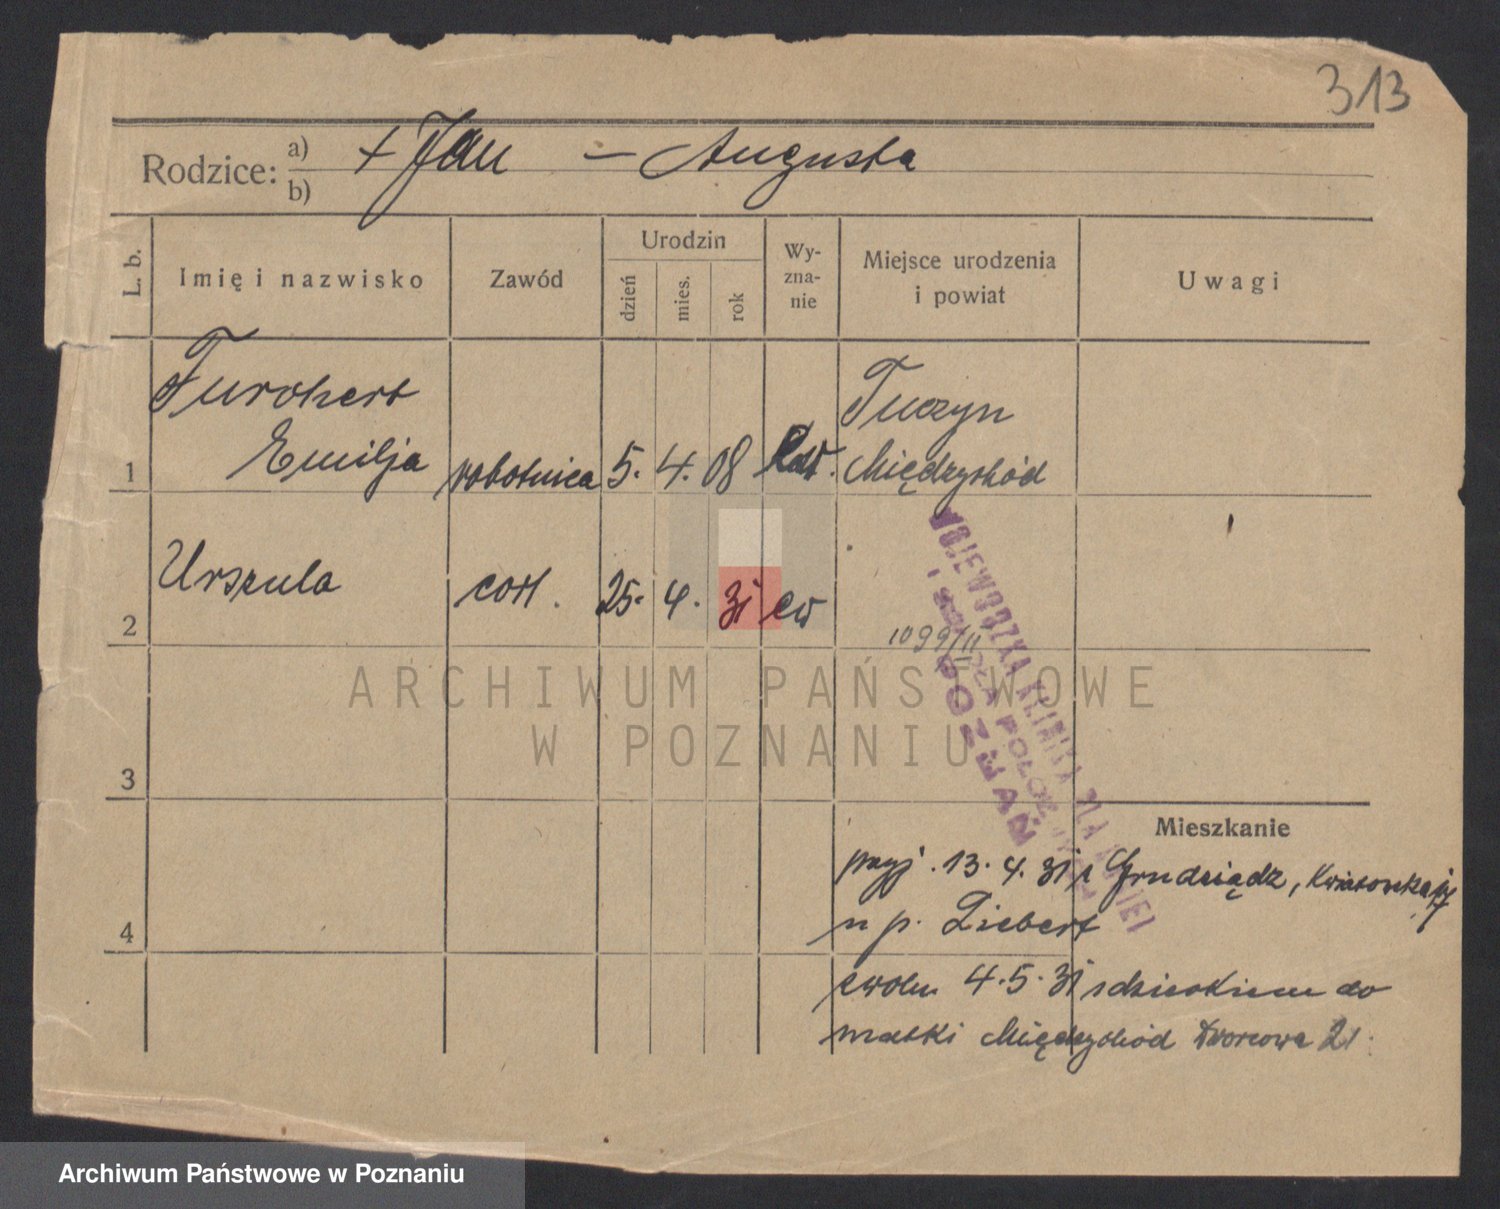 313
Rodzice: a) b) + Jan — Augusta
L. b. Imię i nazwisko Zawód Urodzin dzień mies. rok Wy-zna-nie Miejsce urodzenia i powiat Uwagi
Emilja robotnica 5. 4. 08 Tuczyn Międzychód
1
Urszula córk. 25. 4. 31 ew
2
1099/II
WOJEWÓDZKA KLINIKA DLA
POZNAŃ
3
Mieszkanie
przyj. 13.4.31 z Grudziądz,
u p. Liebert
4
zwoln. 4.5.31 z dzieckiem do
matki Międzychód Dworcowa 21.
ARCHIWUM PAŃSTWOWE
W POZNANIU
Archiwum Państwowe w Poznaniu